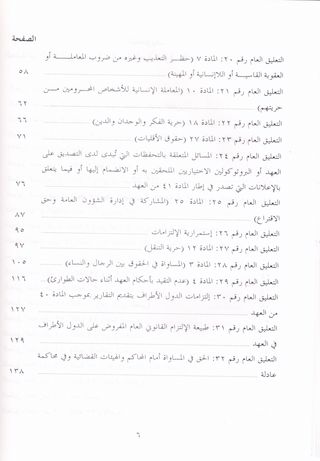 الصفحة
التعليق العام رقم ٢٠: المادة ٧ (حظر التعذيب وغيره من ضروب المعاملة أو
العقوبة القاسية أو اللاإنسانية أو المهينة) ٥٨
التعليق العام رقم ٢١: المادة ١٠ (المعاملة الإنسانية للأشخاص المحرومين من
حريتهم) ٦٢
التعليق العام رقم ٢٢: المادة ١٨ (حرية الفكر والوجدان والدين) ٦٦
التعليق العام رقم ٢٣: المادة ٢٧ (حقوق الأقليات) ٧١
التعليق العام رقم ٢٤: المسائل المتعلقة بالتحفظات التي تُبدى لدى التصديق على
العهد أو البروتوكولين الاختياريين الملحقين به أو الانضمام إليها أو فيما يتعلق
بالإعلانات التي تصدر في إطار المادة ٤١ من العهد ٧٦
التعليق العام رقم ٢٥: المادة ٢٥ (المشاركة في إدارة الشؤون العامة وحق
الاقتراع) ٨٧
التعليق العام رقم ٢٦: إستمرارية الإلتزامات ٩٥
التعليق العام رقم ٢٧: المادة ١٢ (حرية التنقل) ٩٧
التعليق العام رقم ٢٨: المادة ٣ (المساواة في الحقوق بين الرجال والنساء) ١٠٥
التعليق العام رقم ٢٩: المادة ٤ (عدم التقيد بأحكام العهد أثناء حالات الطوارئ) ١١٦
التعليق العام رقم ٣٠: إلتزامات الدول الأطراف بتقديم التقارير بموجب المادة ٤٠
من العهد ١٢٧
التعليق العام رقم ٣١: طبيعة الإلتزام القانوني العام المفروض على الدول الأطراف
في العهد ١٢٩
التعليق العام رقم ٣٢: الحق في المساواة أمام المحاكم والهيئات القضائية وفي محاكمة
عادلة ١٣٨
٦